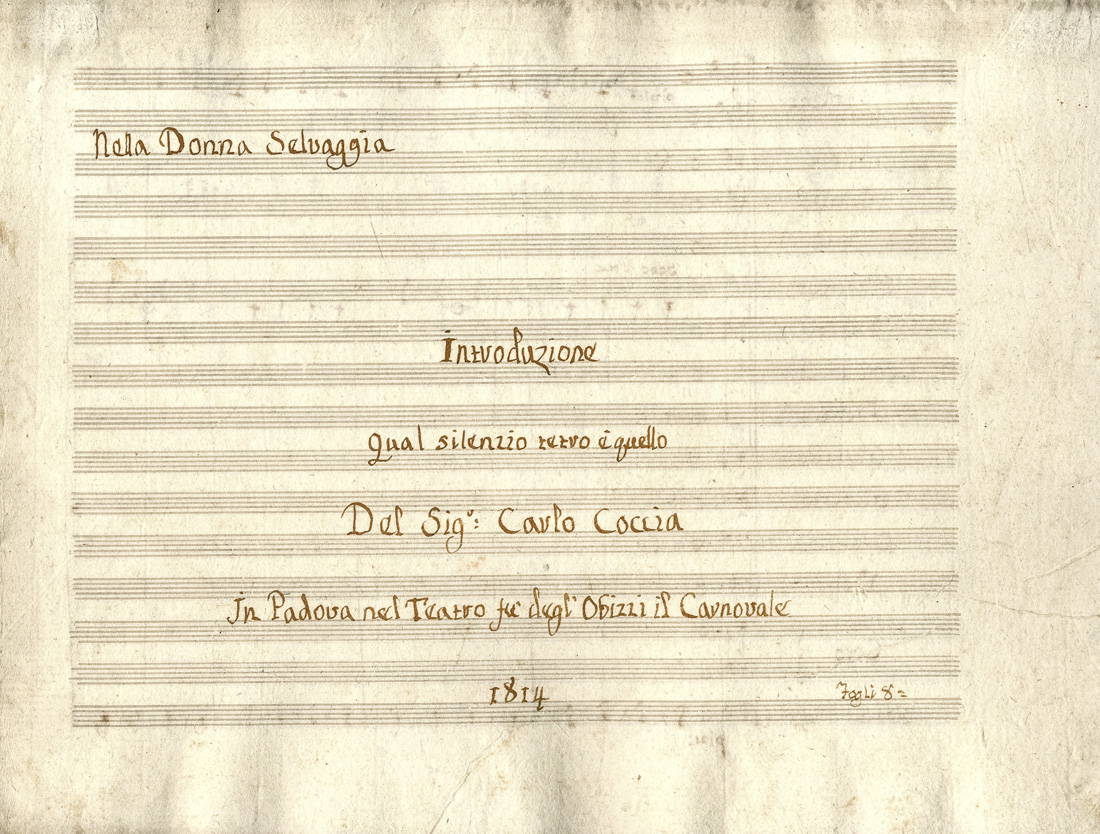 Nella Donna Selvaggia
Introduzione
Qual silenzio tetro è quello
Del Sig.r: Carlo Coccia
In Padova nel Teatro fu degl'Obizzi il Carnovale
1814
Fogli 8=